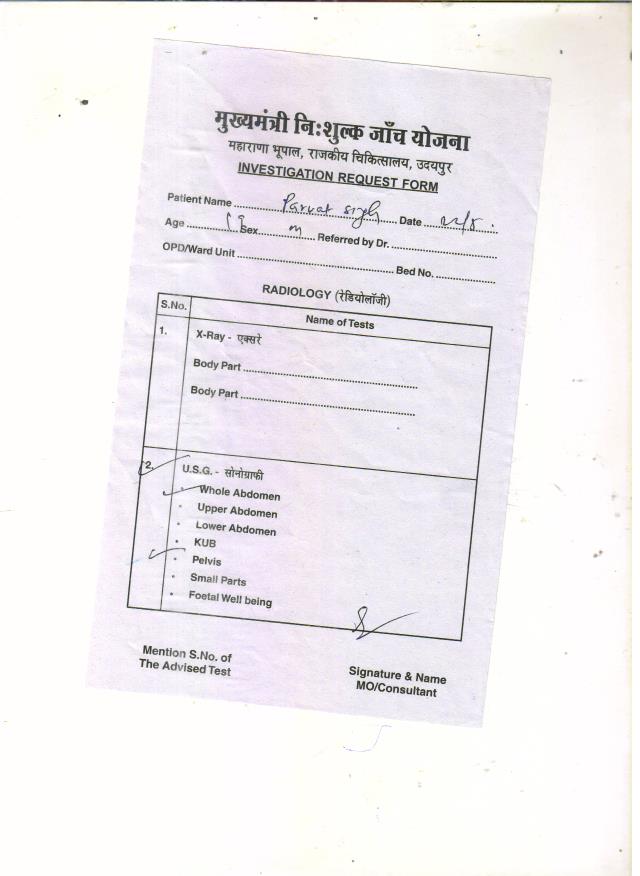 मुख्यमंत्री निःशुल्क जाँच योजना
महाराणा भूपाल, राजकीय चिकित्सालय, उदयपुर
INVESTIGATION REQUEST FORM
Patient Name Parvat Singh Date 22/8.
Age Sex m Referred by Dr.
OPD/Ward Unit Bed No.
RADIOLOGY (रेडियोलॉजी)
S.No. Name of Tests
1. X-Ray - एक्सरे
Body Part
Body Part
2. U.S.G. - सोनोग्राफी
Whole Abdomen
Upper Abdomen
Lower Abdomen
KUB
Pelvis
Small Parts
Foetal Well being
Mention S.No. of
The Advised Test
Signature & Name
MO/Consultant